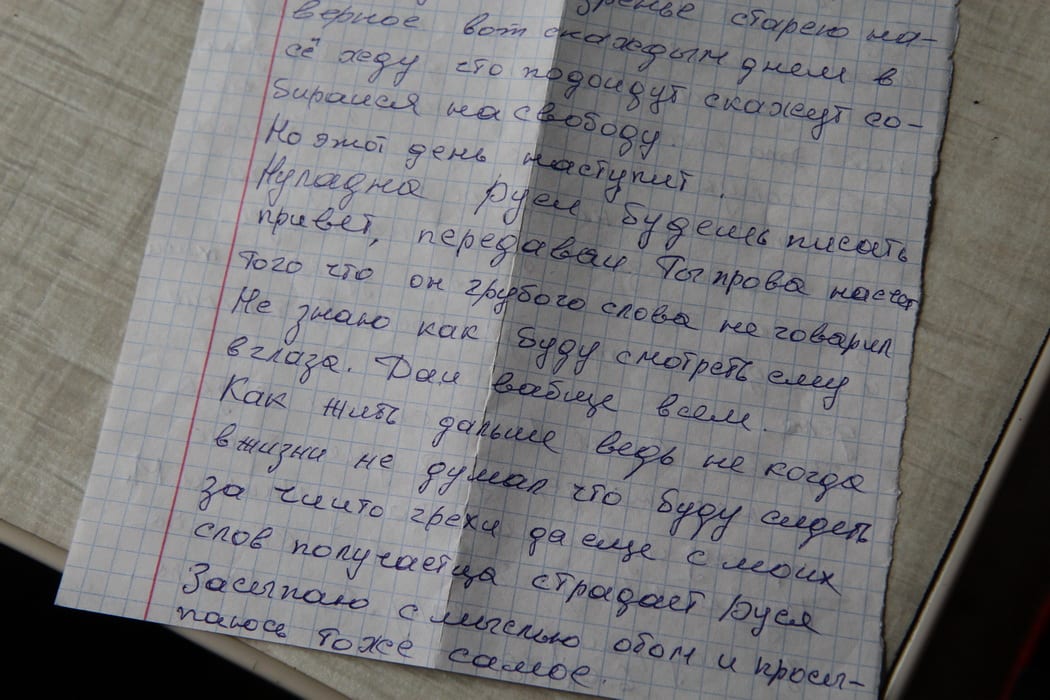 зренье старею на-
верное вот скаждым днем в
сё жду что подойдут скажут со-
бирайся на свободу.
Но этот день наступит.
Нуладна Русе будешь писать
привет, передавай. Ты права насчет
того что он грубого слова не говарил
Не знаю как буду смотреть ему
в глаза. Даи вабще всем.
Как жить дальше ведь не когда
вжизни не думал что буду сидеть
за чиито грехи да еще с моих
слов получаетца страдает Руся
Засыпаю с мыслью обом и просы-
паюсь тоже самое.